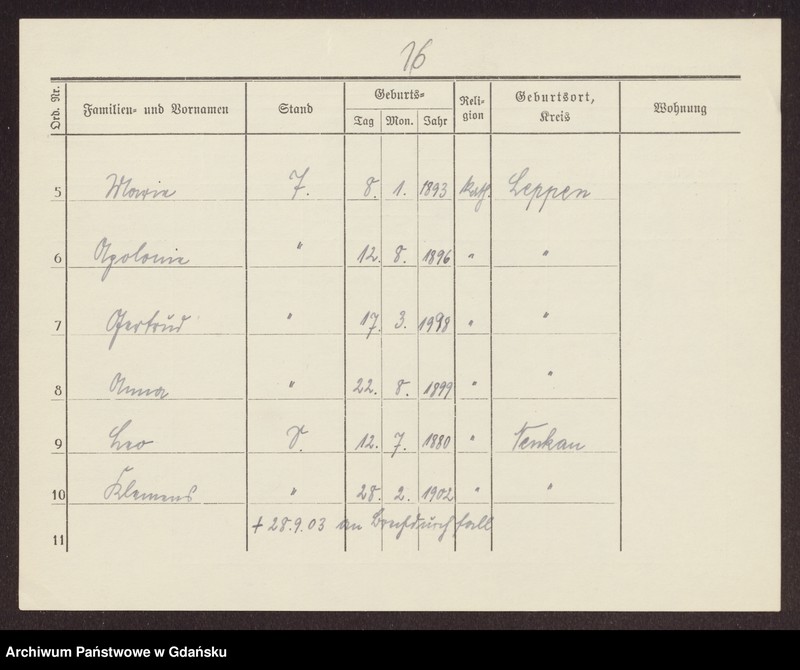 16
Ord. Nr. Familien- und Vornamen Stand Geburts- Tag Mon. Jahr Reli- gion Geburtsort, Kreis Wohnung
5 Marie T. 8. 1. 1893 kath. Leppen
6 Apolonie " 12. 8. 1896 " "
7 Gertrud " 17. 3. 1998 " "
8 Anna " 22. 8. 1899 " "
9 Leo S. 12. 7. 1880 " Nenkau
10 Klemens " 28. 2. 1902 " "
+ 28.9.03 an Brechdurchfall
11
Archiwum Państwowe w Gdańsku